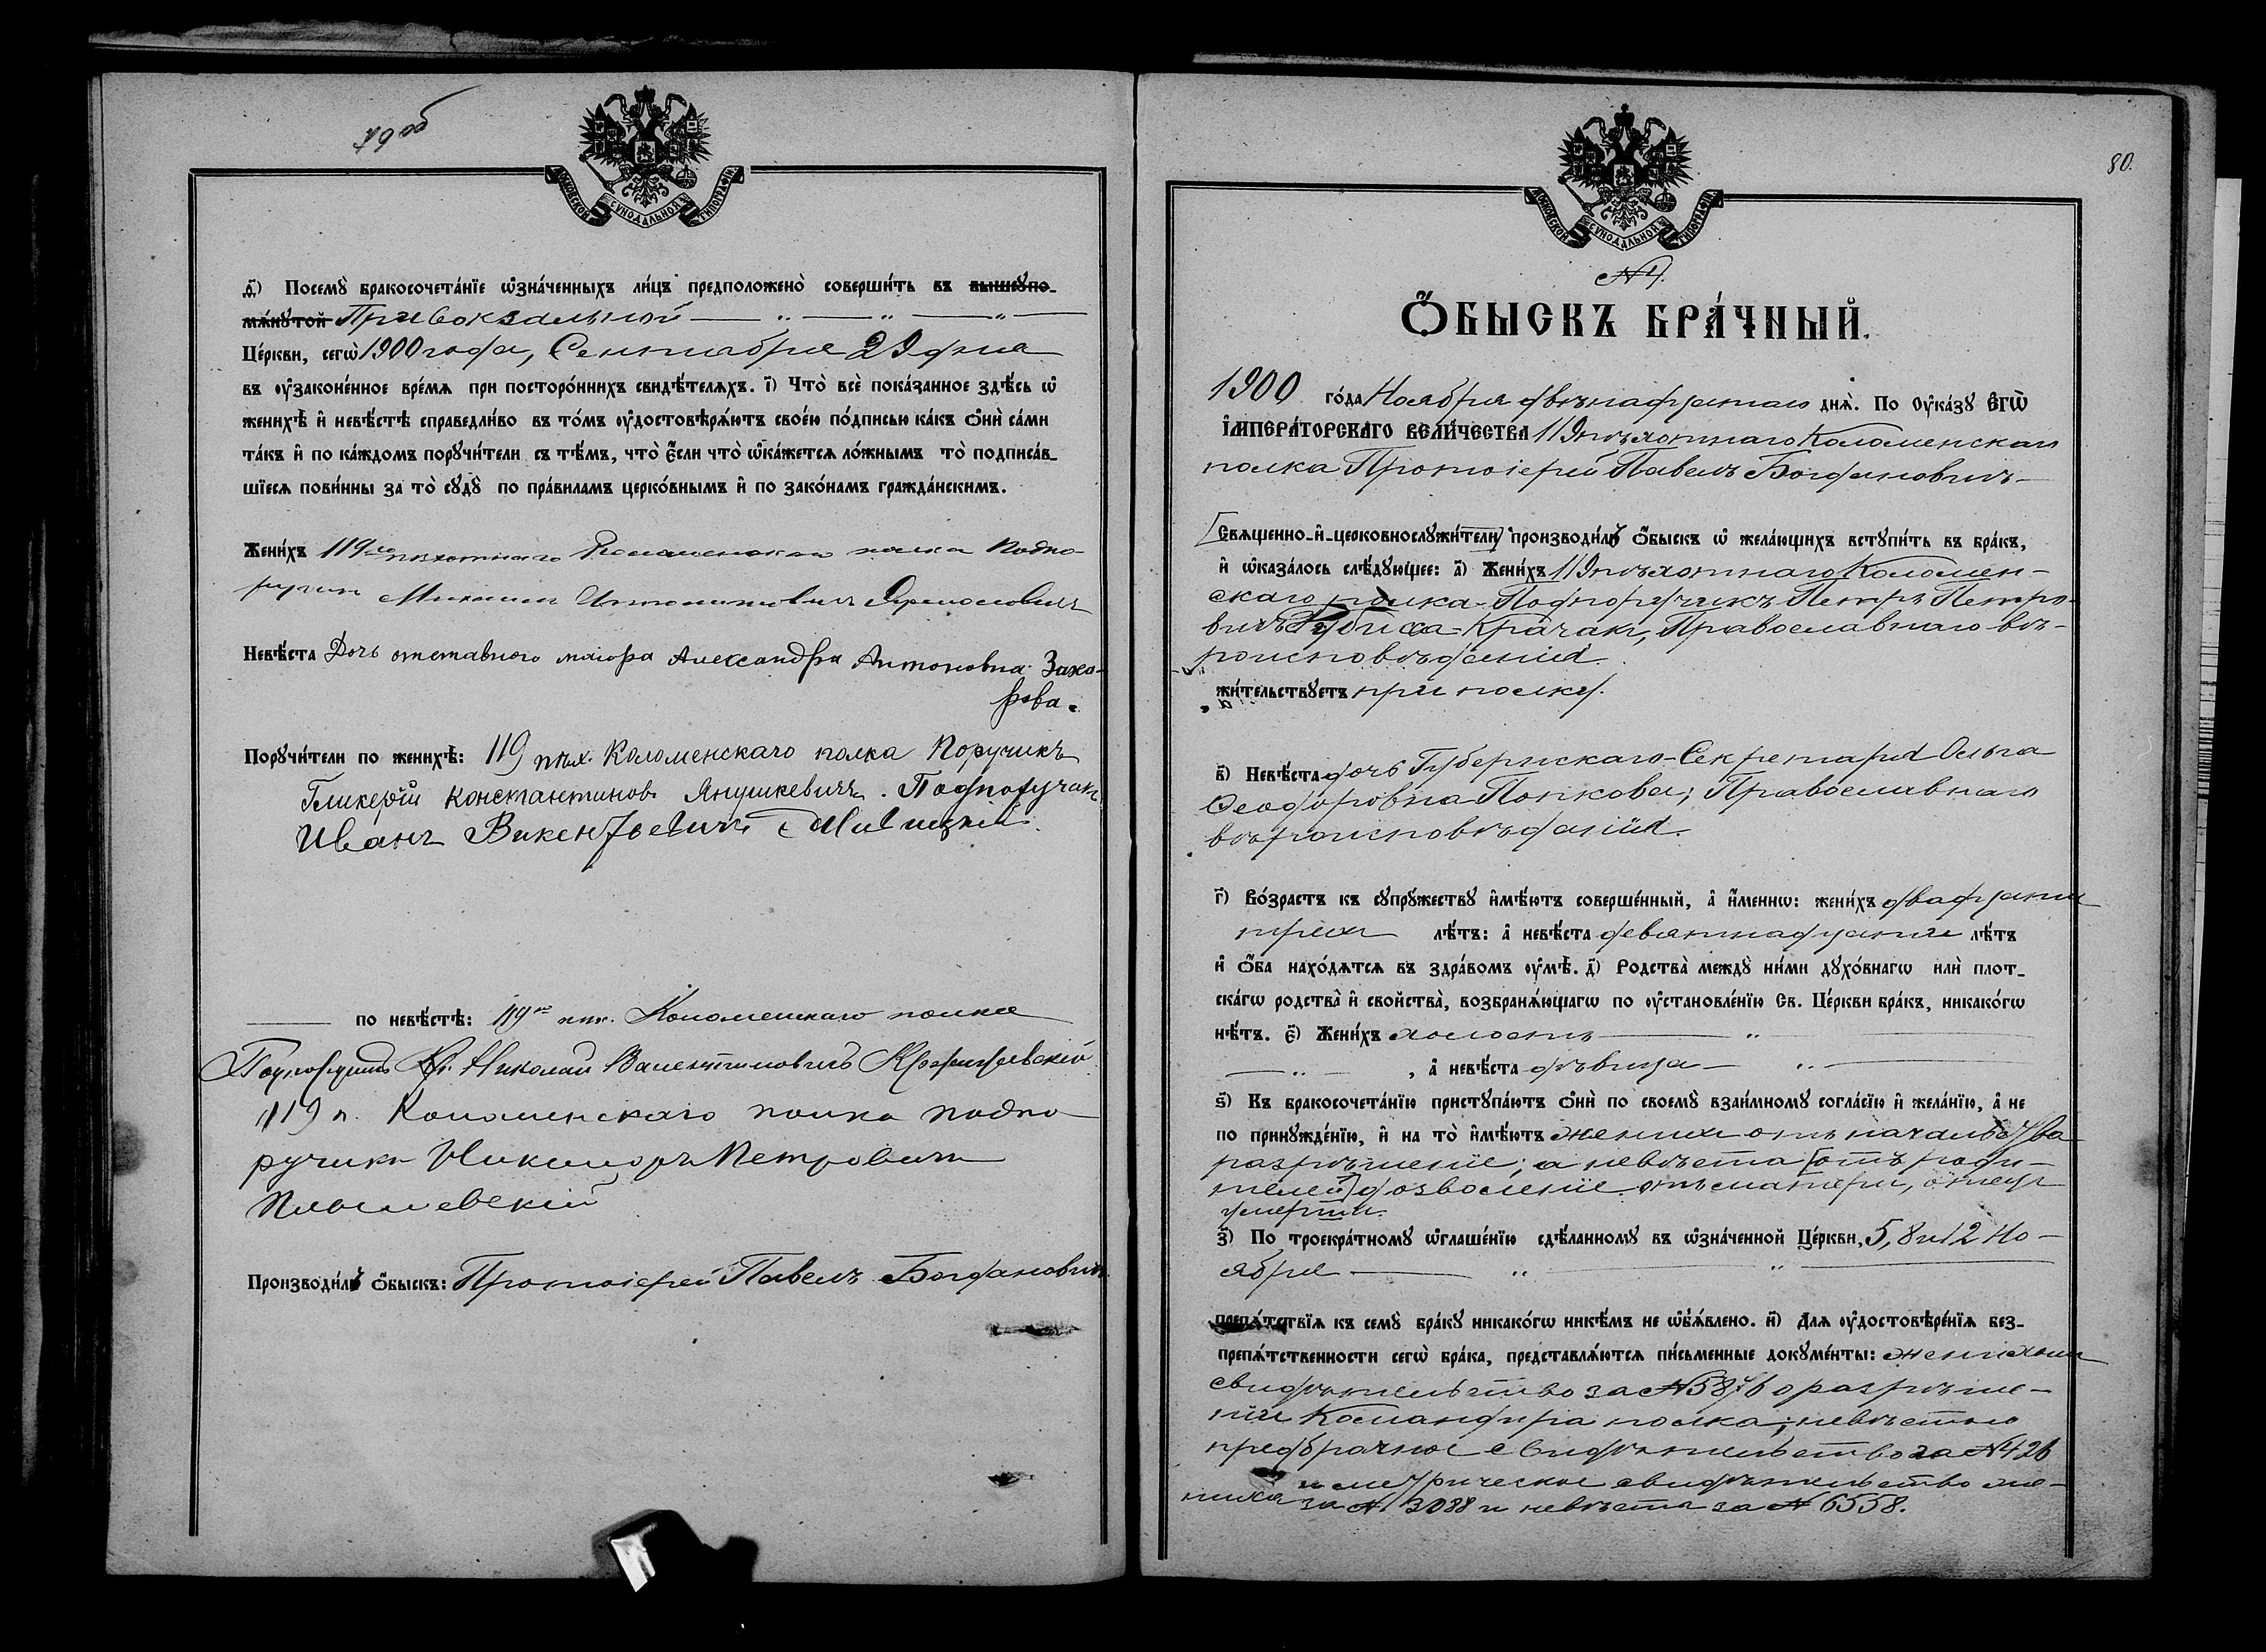 79 об
МОСКОВСКОЙ СѴНОДАЛЬНОЙ ТИПОГРАФІИ
ѳ҃) Посемꙋ̀ бракосочета́нїе ѡ҆зна́ченныхъ ли́цъ предположено̀ соверши́ть въ вышеꙋпо-
мѧ́нꙋтой Привокзальной
Це́ркви, сегѡ̀ 1900 года, Сентября 29 дня
въ ᲂу҆законе́нное вре́мѧ при посторо́ннихъ свидѣ́телѧхъ. і҃) Что̀ всѐ пока́занное здѣ́сь ѡ҆
женихѣ̀ и҆ невѣ́стѣ справедли́во въ то́мъ ᲂу҆достовѣрѧ́ютъ свое́ю по́дписью ка́къ ѻ҆нѝ са́ми
та́къ и҆ по ка́ждомъ порꙋчи́тели съ тѣ́мъ, что̀ є҆́сли что̀ ѡ҆ка́жетсѧ ло́жнымъ то̀ подписа́в-
шїесѧ пови́нны за то̀ сꙋдꙋ̀ по пра́виламъ церко́внымъ и҆ по зако́намъ гражда́нскимъ.
Жени́хъ 119-го пѣхотнаго Коломенскаго полка Подпо-
ручик Михаилъ Антоновичъ
Невѣ́ста Дочь отставного маіора Александра Антоновна Заха-
рова.
Порꙋчи́тели по женихѣ̀: 119 пѣх. Коломенскаго полка Поручикъ
Гликерій Константиновъ Янушкевичъ. Подпоручикъ
Иванъ Викентьевичъ
по невѣ́стѣ: 119го пѣх. Коломенскаго полка
Подпоручикъ Николай Валентиновичъ
119 п. Коломенскаго полка подпо-
ручикъ Никаноръ Петровичъ
Производи́лъ ѻ҆́быскъ: Протоіерей Павелъ Богдановичъ
80.
МОСКОВСКОЙ СѴНОДАЛЬНОЙ ТИПОГРАФІИ
ѺБЫСКЪ БРА́ЧНЫЙ.
1900 го́да Ноября двѣнадцатаго днѧ̀. По Оу҆ка́зꙋ Є҆гѡ̀
І҆МПЕРА́ТОРСКАГО ВЕЛИ́ЧЕСТВА 119 пѣхотнаго Коломенскаго
полка Протоіерей Павелъ Богдановичъ
[Свѧщенно-и҆-церковнослꙋжи́тели] производи́лъ ѻ҆́быскъ ѡ҆ жела́ющихъ встꙋпи́ть въ бра́къ,
и҆ ѡ҆каза́лось слѣ́дꙋющее: а҃) Жени́хъ 119 пѣхотнаго Коломен-
скаго полка Подпоручикъ Петръ Петро-
вичъ Православнаго вѣ-
роисповѣданія
жи́тельствꙋетъ при полку.
в҃) Невѣ́ста дочь Губернскаго Секретаря Ольга
Ѳеодоровна Попкова; Православнаго
вѣроисповѣданія.
г҃) Во́зрастъ къ сꙋпрꙋ́жествꙋ и҆мѣ́ютъ соверше́нный, а҆ и҆́меннѡ: жени́хъ двадцати
трехъ лѣ́тъ: а҆ невѣ́ста девятнадцати лѣ́тъ
и҆ ѻ҆́ба нахо́дѧтсѧ въ здра́вомъ ᲂу҆мѣ̀. д҃) Родства̀ междꙋ̀ ни́ми дꙋхо́внагѡ илѝ плот-
ска́гѡ родства̀ и҆ сво́йства̀, возбранѧ́ющагѡ по ᲂу҆становле́нїю Св. Це́ркви бра́къ, никако́гѡ
нѣ́тъ. є҃) Жени́хъ холостъ
, а҆ невѣ́ста дѣвица
ѕ҃) Къ бракосочета́нїю пристꙋпа́ютъ ѻ҆нѝ по своемꙋ̀ взаи́мномꙋ согла́сїю и҆ жела́нїю, а҆ не
по принꙋжде́нїю, и҆ на то̀ и҆мѣ́ютъ женихъ отъ начальства
разрѣшеніе; а невѣста [отъ роди-
телей] дозволеніе отъ матери, отецъ
умерши.
з҃) По троекра́тномꙋ ѡ҆глаше́нїю сдѣ́ланномꙋ въ ѡ҆зна́ченной Це́ркви, 5, 8 и 12 Но-
ября
препѧ́тствїѧ къ семꙋ̀ бра́кꙋ никако́гѡ никѣ́мъ не ѡ҆б̾ѧ́влено. и҃) Длѧ ᲂу҆достовѣре́нїѧ без-
препѧ́тственности сегѡ̀ бра́ка, представлѧ́ютсѧ пи́сьменные докꙋме́нты: женихомъ
свидѣтельство за № о разрѣше-
ніи Командира полка; невѣстою
предбрачное свидѣтельство за № 426
и метрическое свидѣтельство же-
ниха за № 3088 и невѣста за № 6558.